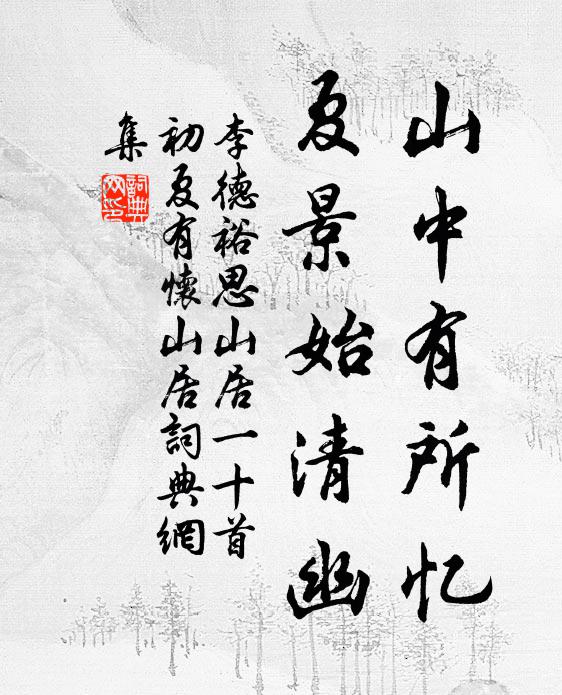 山中有所忆
夏景始清幽
李德裕思山居一十首
初夏有懷山居詞典網
集
詞典網印